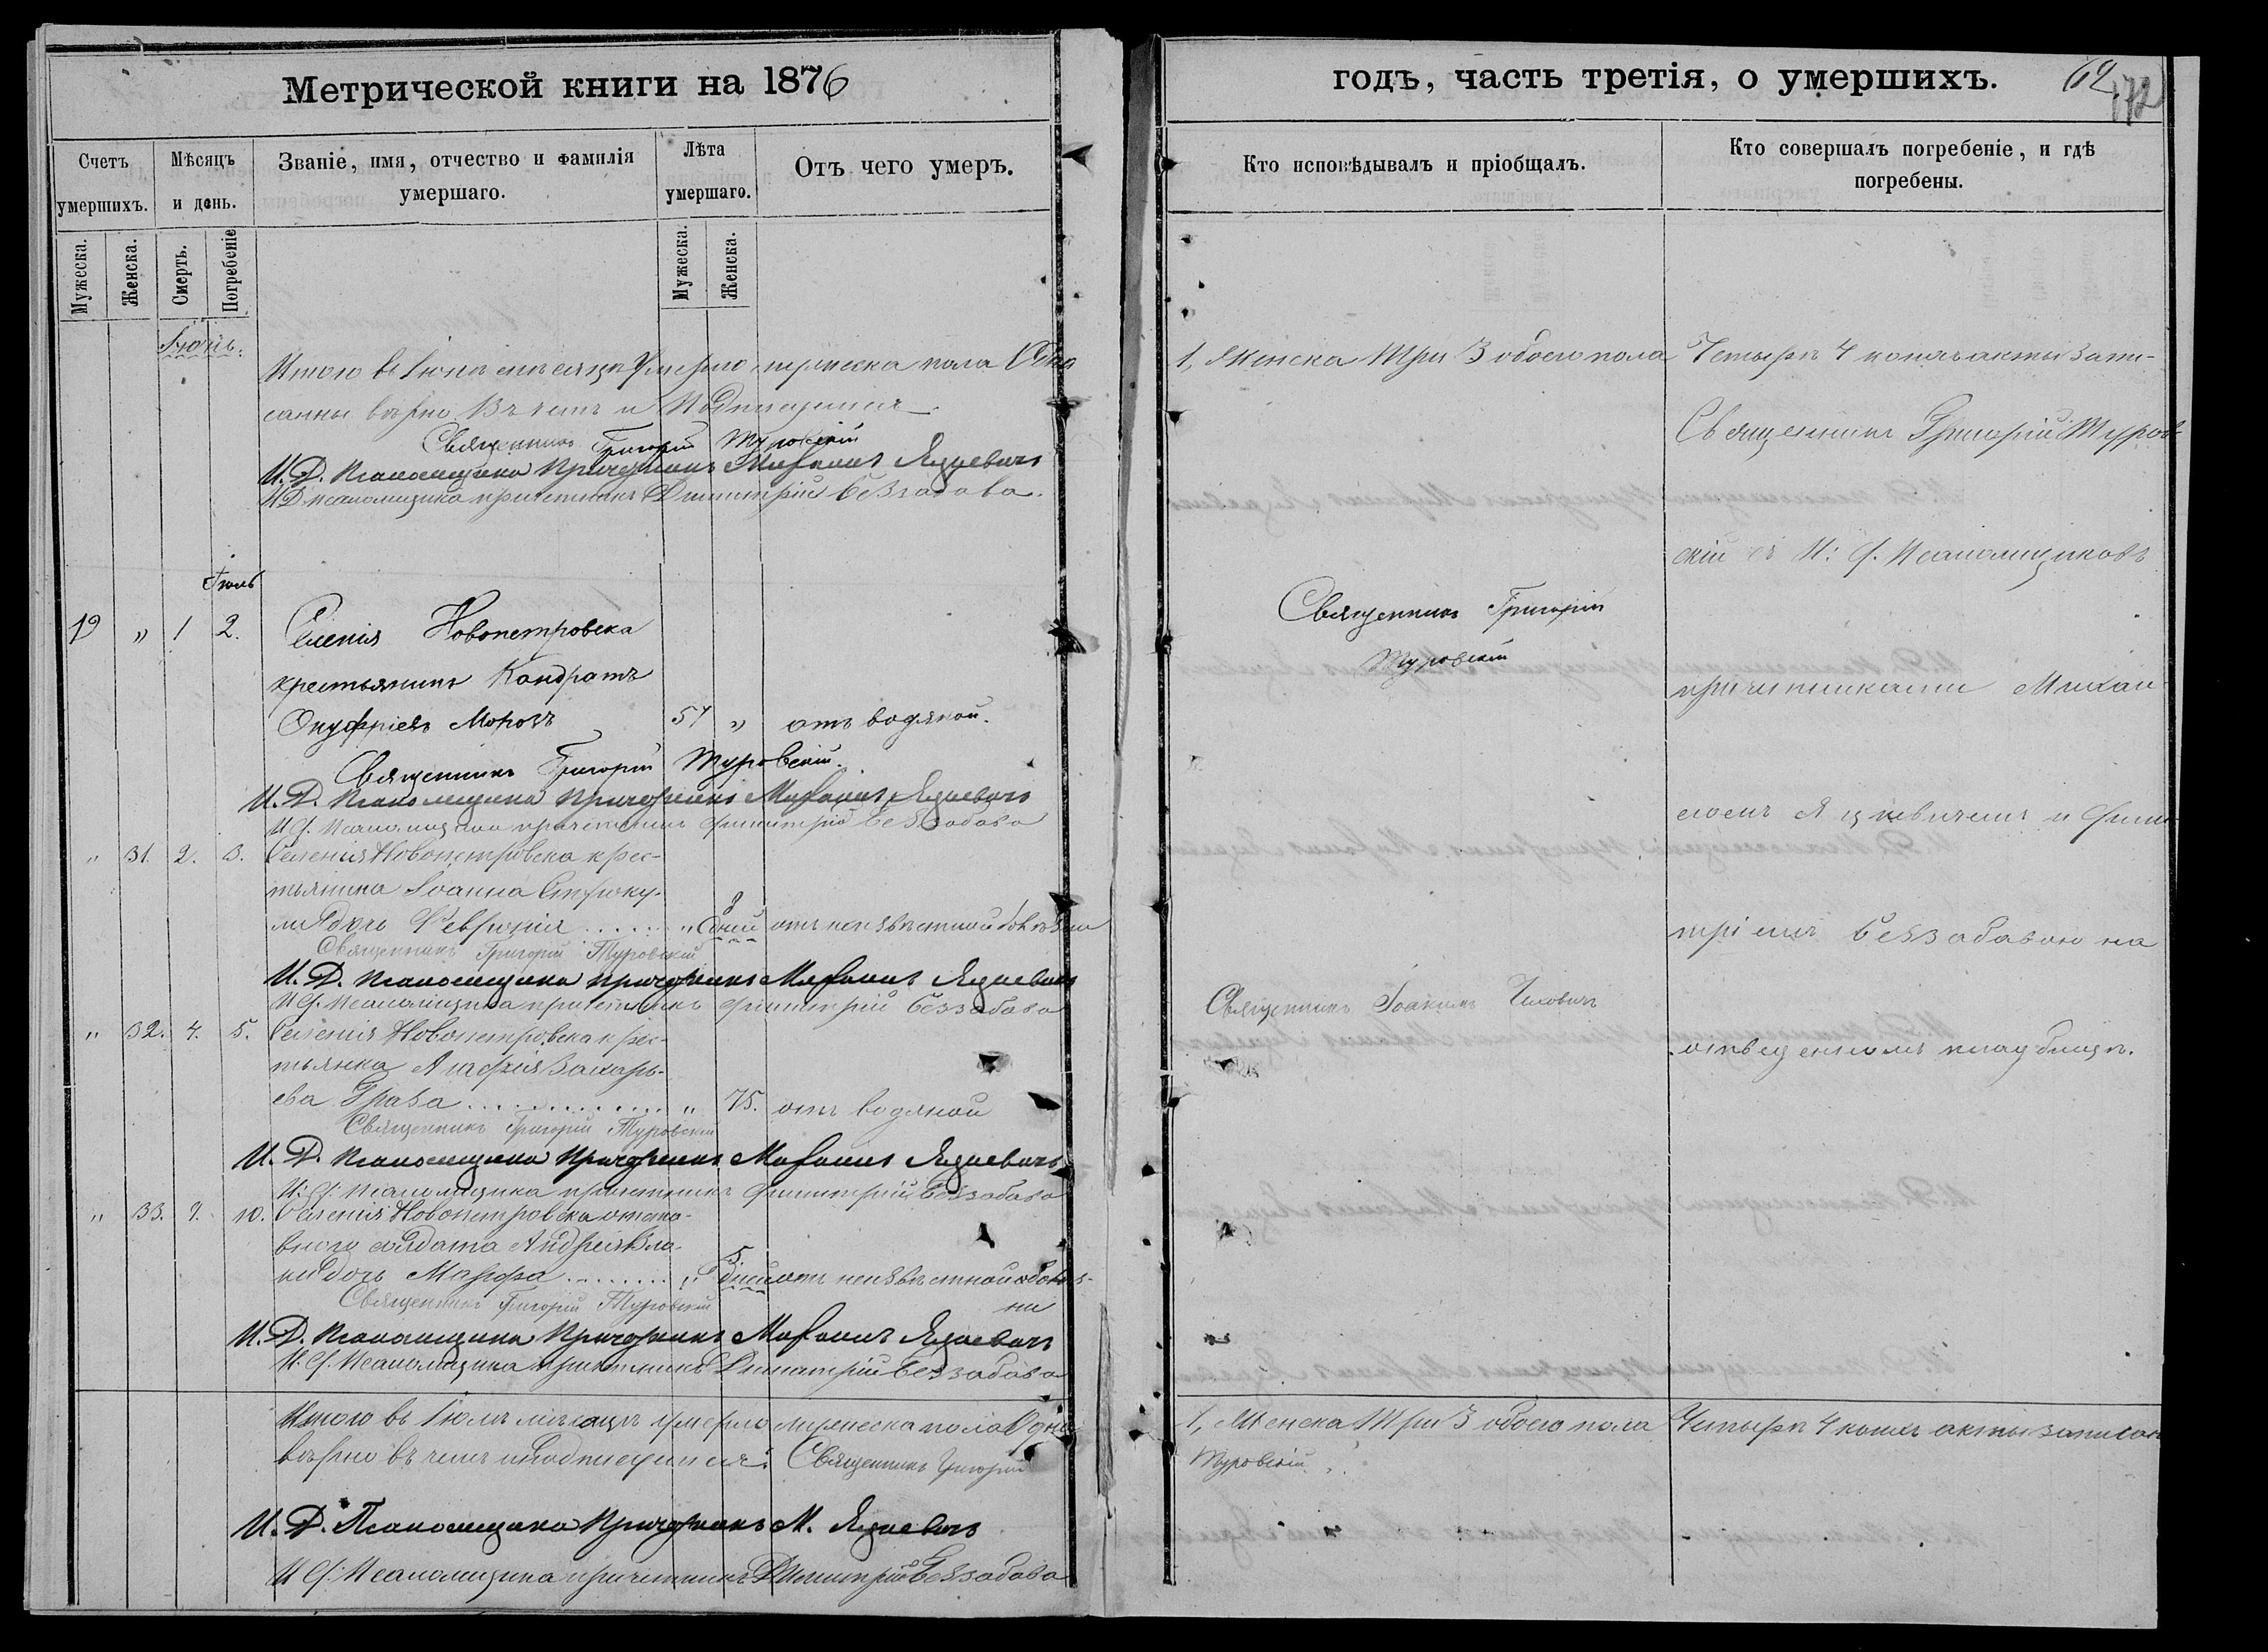 Метрической книги на 1876
Счетъ умершихъ.
Мѣсяцъ и день.
Званіе, имя, отчество и фамилія умершаго.
Лѣта умершаго.
Отъ чего умеръ.
Мужеска.
Женска.
Смерть.
Погребеніе
Мужеска.
Женска.
Іюнь.
Итого въ Іюнѣ мѣсяцѣ Умерло мужеска пола Одна
санны вѣрно. Въ чемъ и Подписуемся
Священникъ Григорій Туровскій
И. Д. Псаломщика Причетникъ Михаилъ Яцкевичъ
И Д псаломщика причетникъ Димитрій Беззабава.
Іюль
19 „ 1 2. Селенія Новопетровска
крестьянинъ Кондратъ
Онуфріевъ Морозъ 57 „ отъ водяной.
Священникъ Григорій Туровскій.
И. Д. Псаломщика Причетникъ Михаилъ Яцкевичъ
И д. Псаломщика причетникъ Димитрій Беззабава
„ 31. 2. 3. Селенія Новопетровска крес-
тьянина Іоанна
дочь Февронія „ 8 дней отъ неизвѣстной болѣзни
Священникъ Григорій Туровскій
И. Д. Псаломщика Причетникъ Михаилъ Яцкевичъ
И д. Псаломщика причетникъ Димитрій Беззабава
„ 32. 4. 5. Селенія Новопетровска крес-
тьянка Захарь-
ева „ 75. отъ водяной
Священникъ Григорій Туровскій
И. Д. Псаломщика Причетникъ Михаилъ Яцкевичъ
И. д. Псаломщика причетникъ Димитрій Беззабава
„ 33. 9. 10. Селенія Новопетровска отста-
внаго солдата Андрея
дочь Марфа „ 5 дней отъ неизвѣстной болѣз-
ни
Священникъ Григорій Туровскій
И. Д. Псаломщика Причетникъ Михаилъ Яцкевичъ
И. д. Псаломщика причетникъ Димитрій Беззабава
Итого въ Іюлѣ мѣсяцѣ умерло мужеска пола Одна
вѣрно въ чемъ и подписуемся: Священникъ Григорій
И. Д. Псаломщика Причетникъ М. Яцкевичъ
И д. Псаломщика причетникъ Димитрій Беззабава
годъ, часть третія, о умершихъ.
62
172
Кто исповѣдывалъ и пріобщалъ.
Кто совершалъ погребеніе, и гдѣ погребены.
1, Женска Три 3 обоего пола Четырѣ 4 акты запи-
Священникъ Григорій Туров-
скій съ И: д. Псаломщиковъ
Священникъ Григорій
Туровскій
причетниками Михаи-
ломъ Яцкевичемъ и Дими-
тріемъ Беззабавою на
Священникъ Іоакимъ
отведенномъ кладбищѣ.
1, Женска Три 3 обоего пола Четырѣ 4 акты записан
Туровскій